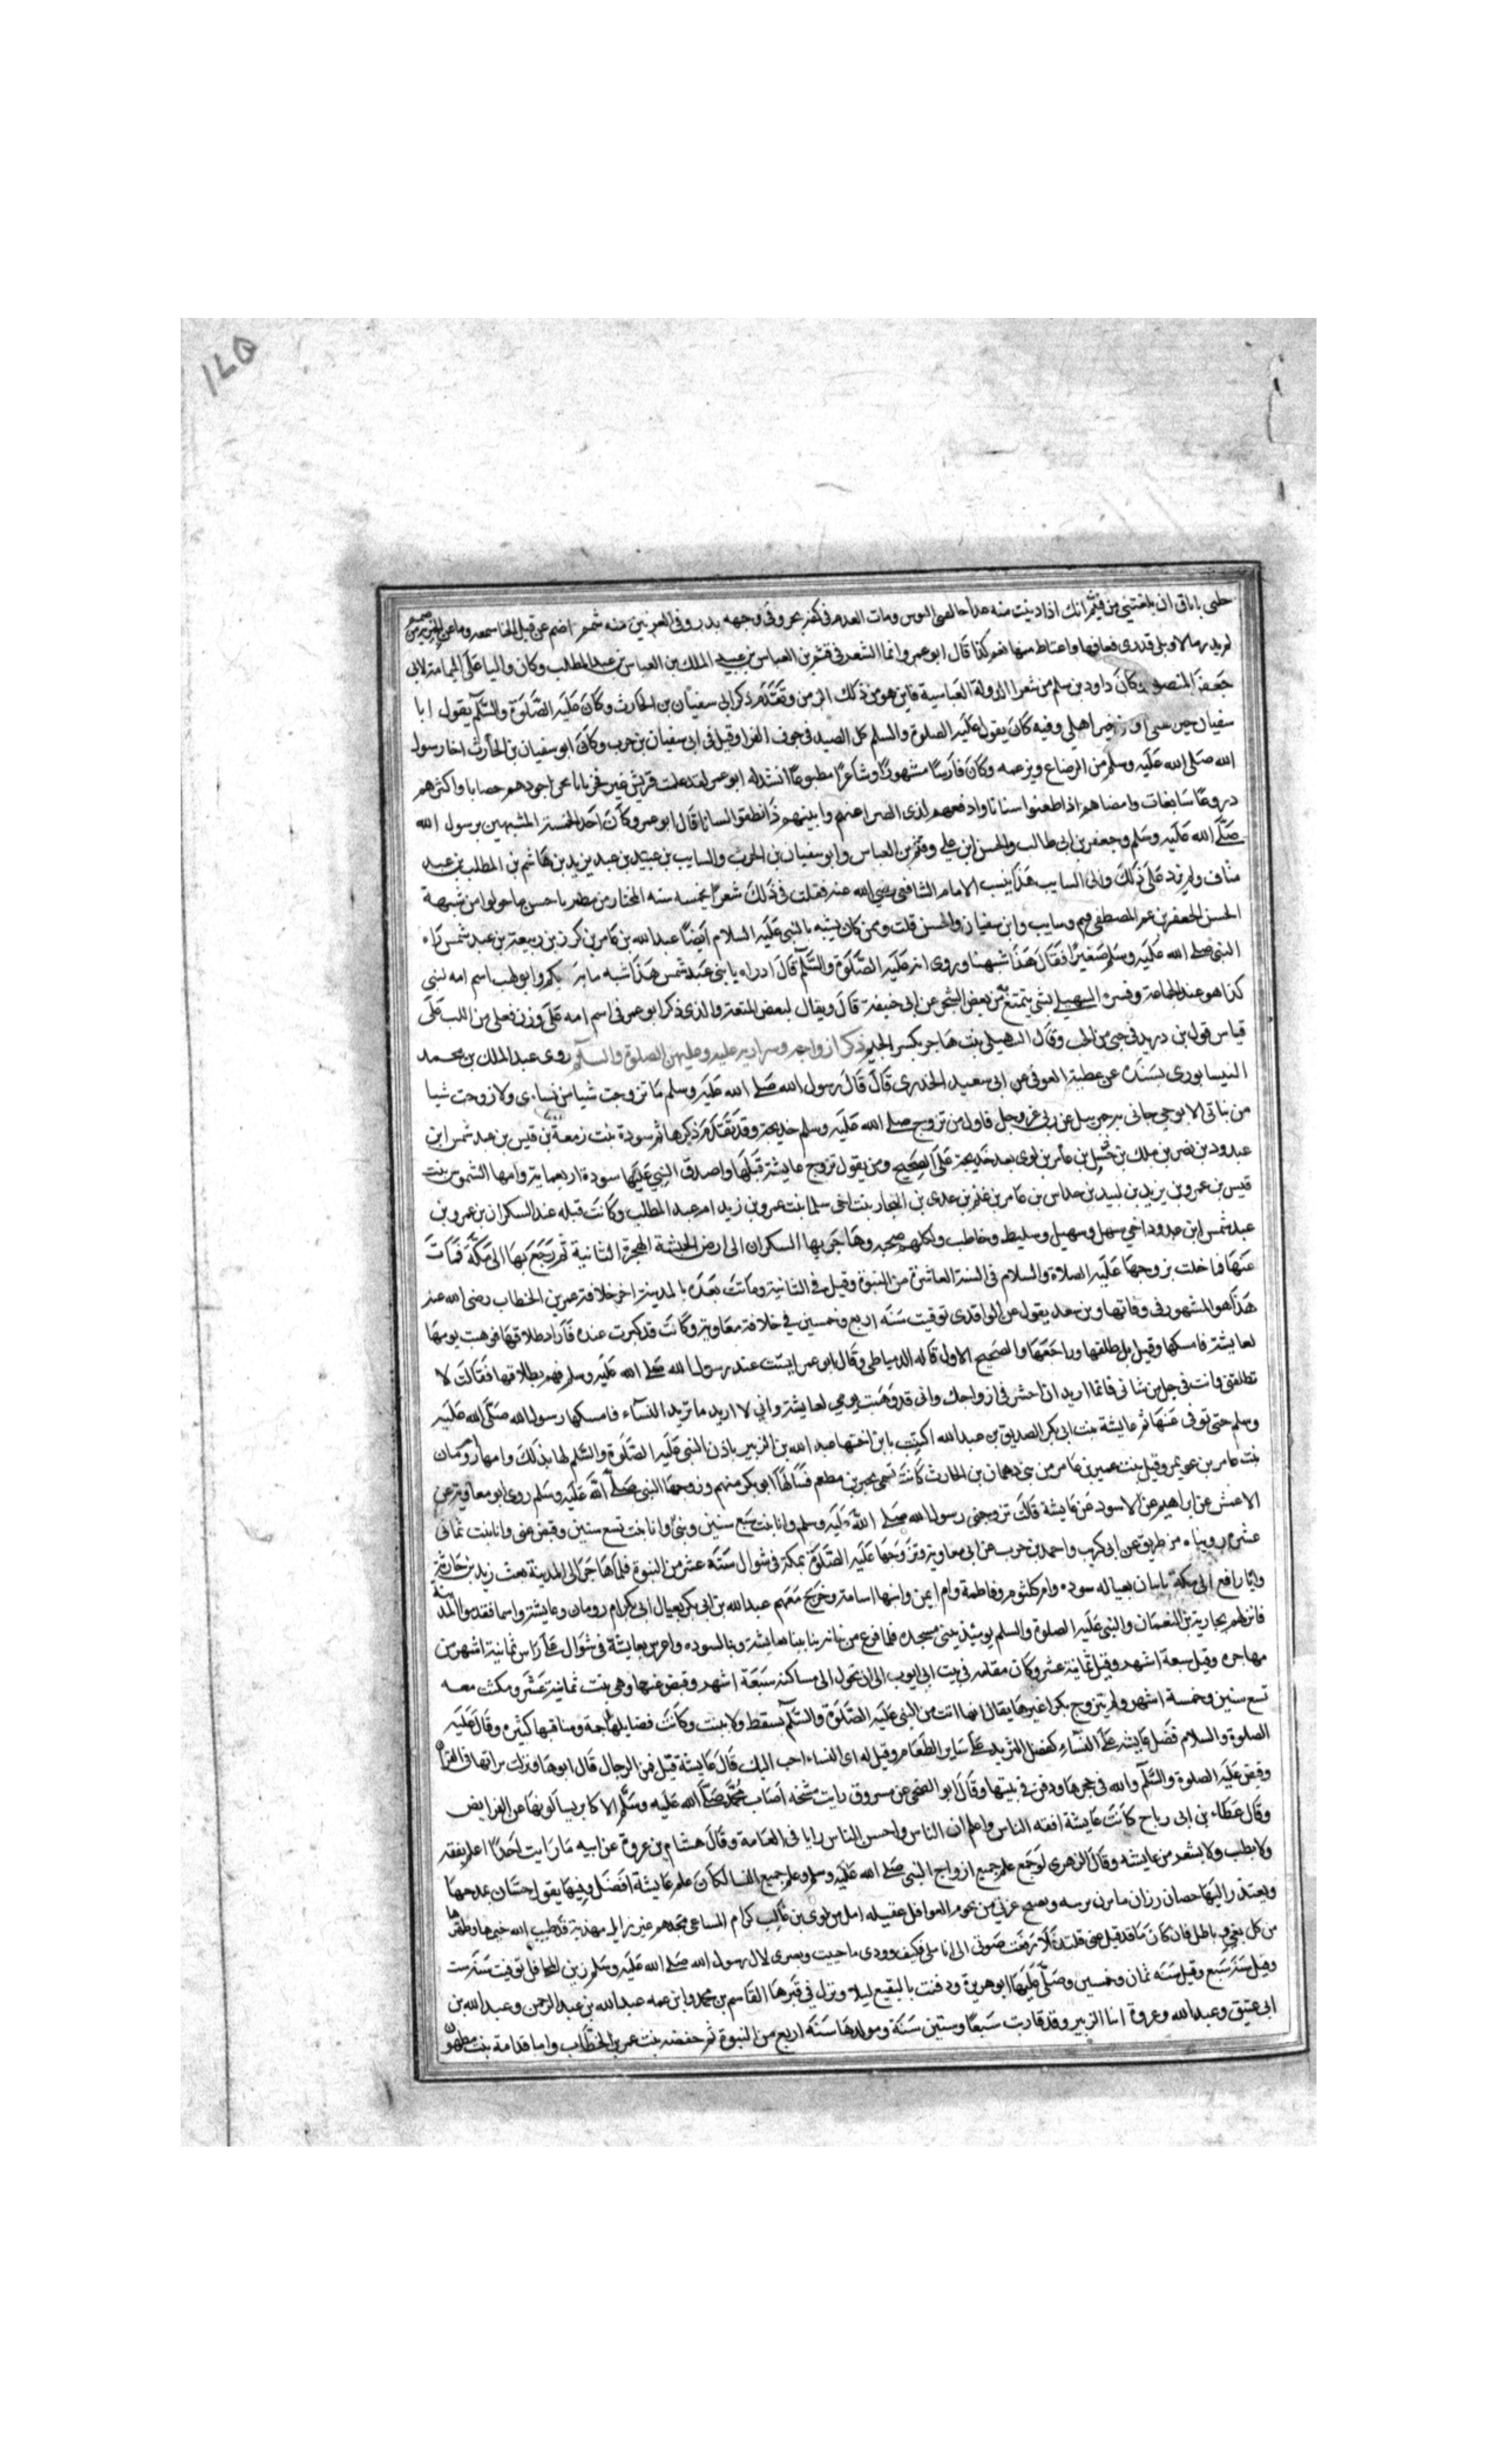 ١٤٥
حلى باناق ان بلغتنى من قثم انك اذا دنيت منه غدا حالفنى البوس ومات العدم فى كفه بحر وفى وجهه بدر وفى العرنين منه شمم اصم عن قيل الخنا سمعه وما عن الخير به من صمم
لم يدر ما لا وبلى قد درى فعافها واعتاض منها نعم كذا قال ابو عمر وانما الشعر فى قثم بن العباس بن عبيد الله بن العباس بن عبد المطلب وكان واليا على اليمامة لابى
جعفر المنصور وكان داود بن سلم من شعرا الدولة العباسية فاين هو من ذلك الزمن وتقدم ذكر ابى سفيان بن الحارث وكان عليه الصلوة والسلم يقول ابا
سفيان خير اهلى وفيه كان يقول عليه الصلوة والسلم كل الصيد فى جوف الفرا وقيل فى ابى سفيان بن حرب وكان ابو سفيان بن الحارث اخا رسول
الله صلى الله عليه وسلم من الرضاع وبن عمه وكان فارسا مشهورا وشاعرا مطبوعا انشد له ابو عمر لقد علمت قريش غير فخر بانا نحن اجودهم حصانا واكثرهم
دروعا سابغات وامضاهم اذا طعنوا سنانا وادفعهم لذى الضرا عنهم وابينهم اذا نطقوا لسانا قال ابو عمر وكان احد الخمسة المشبهين برسول الله
صلى الله عليه وسلم وجعفر بن ابى طالب والحسن ابن على وقثم بن العباس وابو سفيان بن الحرث والسايب بن عبيد بن عبد يزيد بن هاشم بن المطلب بن عبد
مناف ولم يزد على ذلك والى السايب هذا ينسب الامام الشافعى رضي الله عنه فقلت فى ذلك شعرا بخمسه شبه المختار من مضر يا حسن ما خولوا من شبهه
الحسن لجعفر بن عم المصطفى قثم وسايب وابى سفيان والحسن قلت وممن كان يشبه بالنبى عليه السلام ايضا عبد الله بن عامر بن كريز بن ربيعة بن عبد شمس راه
النبى صلى الله عليه وسلم صغيرا فقال هذا شبهنا وروى انه عليه الصلوة والسلم قال اذ راه يا بنى عبد شمس هذا اشبه بنا منه بكم وابو لهب اسم امه لبنى
كذا هو عند الجماعة وفسره السهيلى بشى يتميع من بعض الشجر عن ابى حنيفة قال ويقال لبعض المتعة والذى ذكر ابو عمر فى اسم امه على وزن فعلى من اللب على
قياس قول بن دريد فى حبى من الحب وقال السهيلى بنت هاجر بكسر الجيم ذكر ازواجه وسراريه عليه وعليهن الصلوة والسلم روى عبد الملك بن محمد
النيسابورى بسنده عن عطية العوفى عن ابى سعيد الخدرى قال قال رسول الله صلى الله عليه وسلم ما تزوجت شيا من نساى ولا زوجت شيا
من بناتى الا بوحى جانى به جبريل عن ربى عز وجل فاول من تزوج صلى الله عليه وسلم خديجة وقد تقدم ذكرها ثم سودة بنت زمعة بن قيس بن عبد شمس ابن
عبد ود بن نصر بن ملك بن حسل بن عامر بن لوى بعد خديجة على الصحيح ومن يقول تزوج عايشة قبلها واصدق النبى عليها سودة اربعماية وامها الشموس بنت
قيس بن عمرو بن يزيد بن لبيد بن خداش بن عامر بن غنم بن عدى بن النجار بنت اخى سلما بنت عمرو بن زيد ام عبد المطلب وكانت قبله عند السكران بن عمرو بن
عبد شمس ابن عبدود اخى سهل وسهيل وسليط وحاطب ولكلهم صحبه وهاجر بها السكران الى ارض الحبشة الهجرة الثانية ثم رجع بها الى مكة فمات
عنها فلما حلت تزوجها عليه الصلاة والسلام فى السنة العاشرة من النبوة وقيل فى الثانية وماتت بعده بالمدينة اخر خلافة عمر بن الخطاب رضى الله عنه
هذا هو المشهور فى وفاتها وبن سعد يقول عن الواقدى توفيت سنة اربع وخمسين فى خلافة معاوية وكانت قد كبرت عنده فاراد طلاقها فوهبت يومها
لعايشة فامسكها وقيل بل طلقها وراجعها والصحيح الاول قاله الدمياطى وقال ابو عمر اسنت عند رسول الله صلى الله عليه وسلم فهم بطلاقها فقالت لا
تطلقنى وانت فى حل من شانى فانما اريد ان احشر فى ازواجك وانى قد وهبت يومى لعايشة وانى لا اريد ما تريد النساء فامسكها رسول الله صلى الله عليه
وسلم حتى توفى عنها ثم عايشة بنت ابى بكر الصديق بن عبد الله اكتنت بابن اختها عبد الله بن الزبير باذن النبى عليه الصلوة والسلم لها بذلك وامها ام رومان
بنت عامر بن عويمر وقيل بنت عمير بن عامر من بنى دهمان بن الحارث كانت تسمى لجبير بن مطعم فسالها ابو بكر منهم وزوجها النبى صلى الله عليه وسلم روى ابو معاوية عن
الاعمش عن ابراهيم عن الاسود عن عايشة قالت تزوجنى رسول الله صلى الله عليه وسلم وانا بنت سبع سنين وبنى وانا بنت تسع سنين وقبض عنى وانا بنت ثمانى
عشرة رويناه من طريق عن ابى كريب واحمد بن حرب عن ابى معاوية وتزوجها عليه الصلوة بمكة فى شوال سنة عشر من النبوة فلما هاجر الى المدينة بعث زيد بن حارثة
وابا رافع الى مكة ياتيان بعياله سوده وام كلثوم وفاطمة وام ايمن وابنها اسامة وخرج معهم عبد الله بن ابى بكر بعيال ابى بكر ام رومان وعايشة واسما فقدموا المدينة
فانزلهم بحارثة بن النعمان والنبى عليه الصلوة والسلم يوميذ يبنى مسجده فلما فرغ من بنايه بنا بيتا لعايشة وبيتا لسوده واعرس بعايشة فى شوال على راس ثمانية اشهر من
مهاجره وقيل سبعة اشهر وقيل ثمانية عشر وكان مقامه فى بيت ابى ايوب الى ان تحول الى مساكنه سبعة اشهر وقبض عنها وهى بنت ثمانية عشر ومكثت معه
تسع سنين وخمسة اشهر ولم يتزوج بكرا غيرها يقال انها اتت من النبى عليه الصلوة والسلم بسقط ولا يثبت وكانت فضايلها جمة ومناقبها كثيرة وقال عليه
الصلوة والسلام فضل عايشة على النساء كفضل الثريد على ساير الطعام وقيل له اى النساء احب اليك قال عايشة قيل فمن الرجال قال ابوها ونزلت براتها فى القران
وقبض عليه الصلوة والسلم والله فى حجرها ودفن فى بيتها وقال ابو الضحى عن مسروق رايت مشيخه اصحاب محمد صلى الله عليه وسلم الاكابر يسالونها عن الفرايض
وقال عطاء بن ابى رباح كانت عايشة افقه الناس واعلم الناس واحسن الناس رايا فى العامة وقال هشام بن عروة عن ابيه ما رايت احدا اعلم بفقه
ولا بطب ولا بشعر من عايشه وقال الزهرى لو جمع علم جميع ازواج النبى صلى الله عليه وسلم وعلم جميع النسا لكان علم عايشة افضل وفيها يقول حسان يمدحها
ويعتذر اليها حصان رزان ما تزن بريبه وتصبح غرثى من لحوم الغوافل عقيله اصل من لوى بن غالب كرام المساعى مجدهم غير زايل مهذبة قد طيب الله خيمها وطهرها
من كل بغى وباطل فان كان ما قد قيل عنى قلته فلا رفعت صوتى الى انا ملى فكيف وودى ما حييت ونصرى لال رسول الله صلى الله عليه وسلم زين المحافل توفيت سنة ست
وقيل سنة سبع وقيل سنة ثمان وخمسين وصلى عليها ابو هريرة ودفنت بالبقيع ليلا ونزل فى قبرها القاسم بن محمد وابن عمه عبد الله بن عبد الرحمن وعبد الله بن
ابى عتيق وعبد الله وعروة ابنا الزبير وقد قاربت سبعا وستين سنة ومولدها سنة اربع من النبوة ثم حفصه بنت عمر بن الخطاب وامها قدامة بنت مظعون